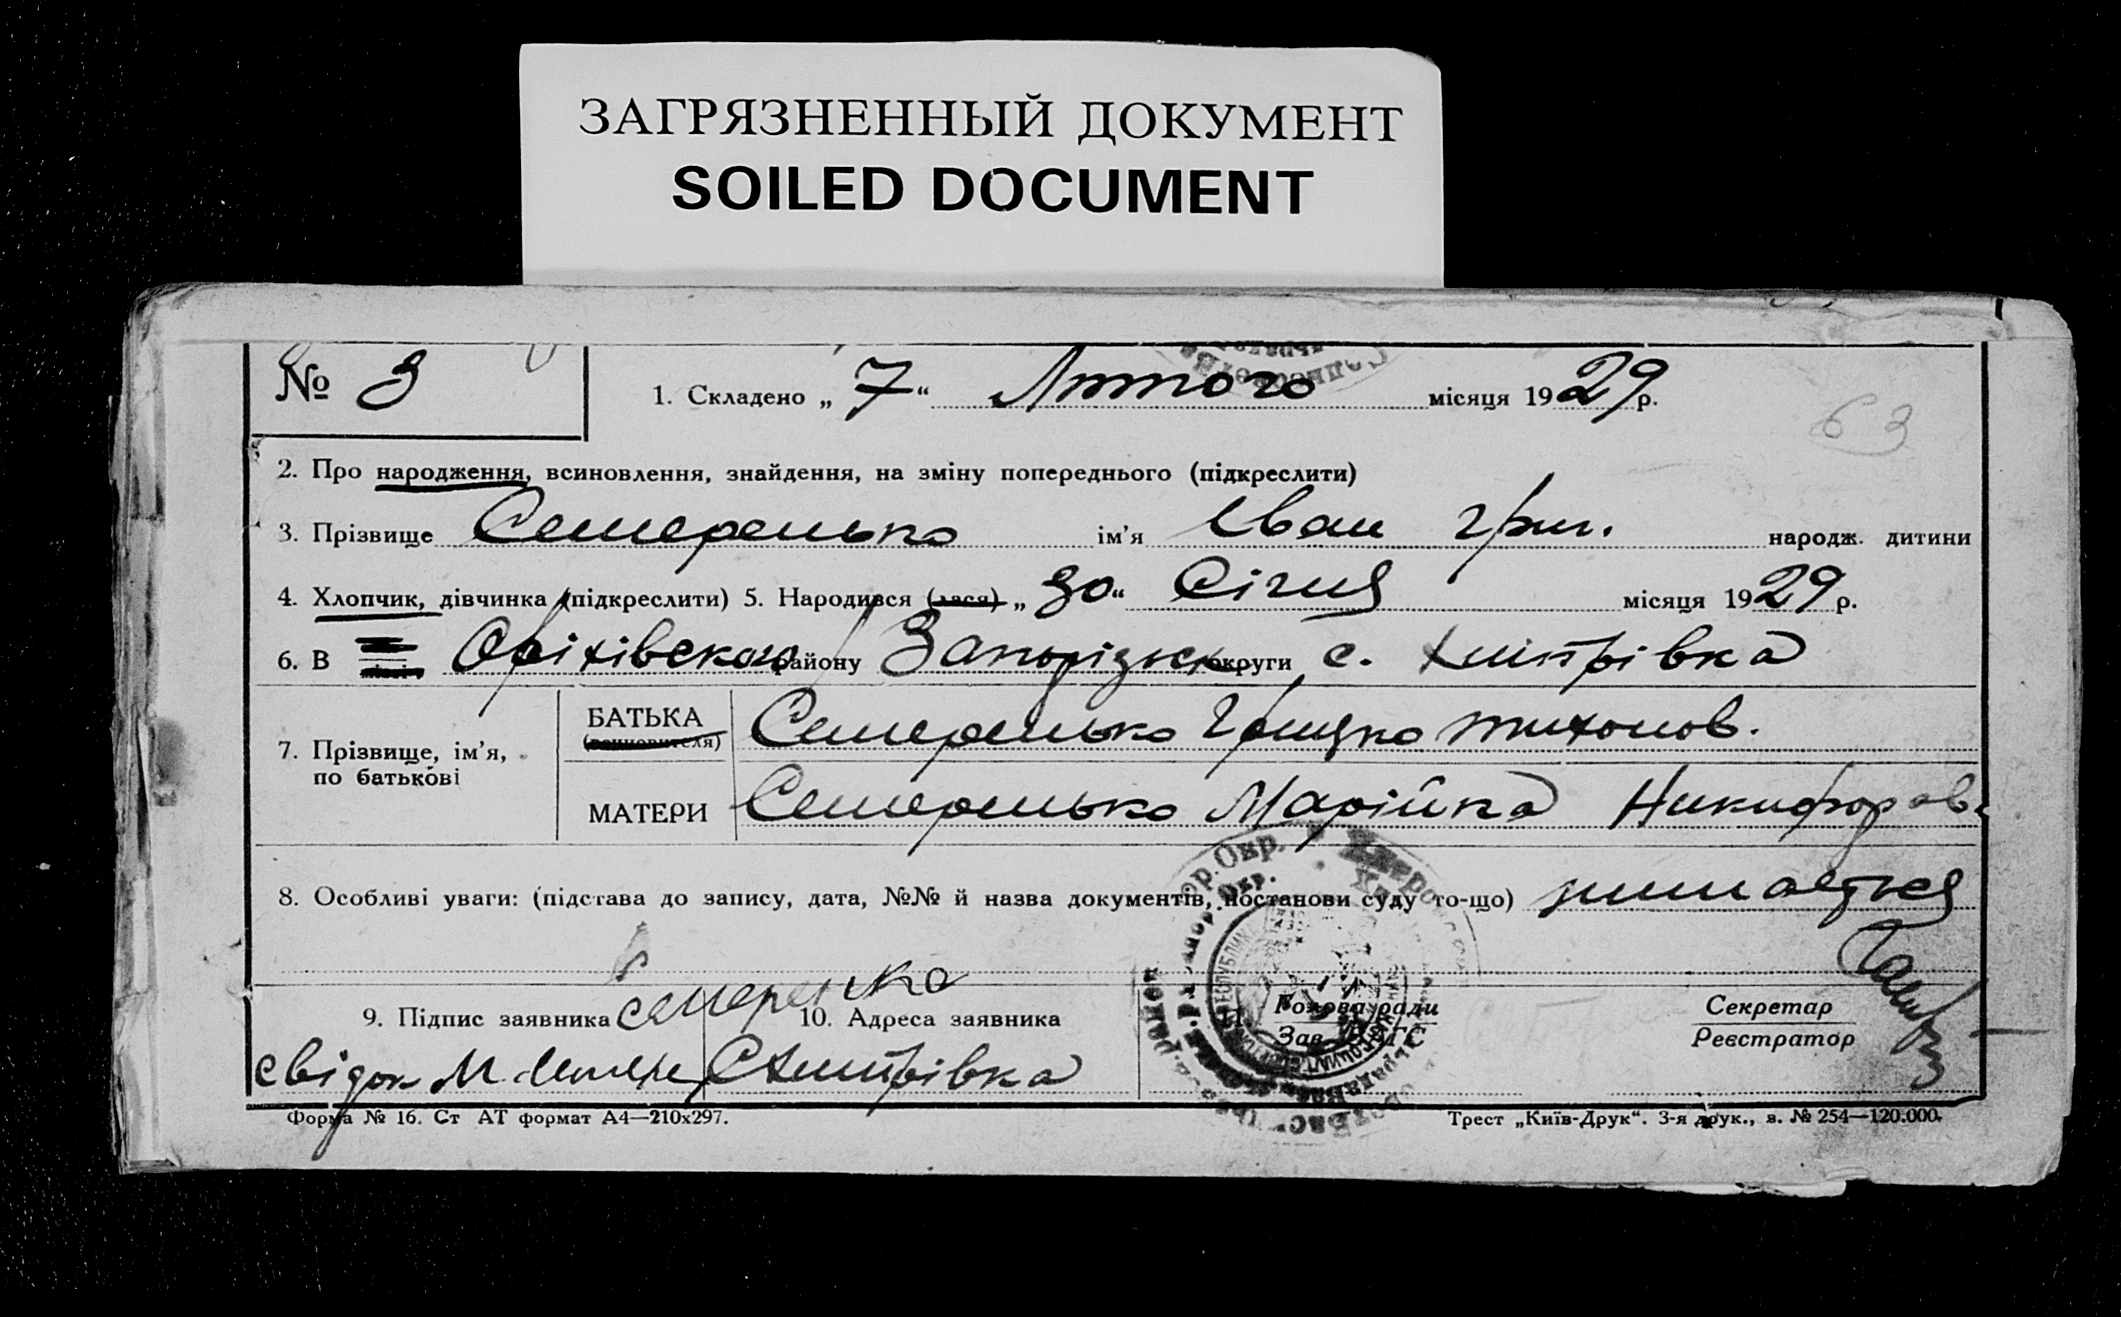 ЗАГРЯЗНЕННЫЙ ДОКУМЕНТ
SOILED DOCUMENT
№ 3
1. Складено „ 7 “ Лютого місяця 1929 р.
63
2. Про народження, всиновлення, знайдення, на зміну попереднього (підкреслити)
3. Прізвище Семеренько ім’я Іван Григ. народж. дитини
4. Хлопчик, дівчинка (підкреслити) 5. Народився (лася) „ 30 “ Січня місяця 1929 р.
6. В Оріхівском району Запорізьк округи с.
7. Прізвище, ім’я, по батькові
БАТЬКА Семеренько Грицко Тихонов.
МАТЕРИ Семеренько Марійка Никифоров.
8. Особливі уваги: (підстава до запису, дата, №№ й назва документів, постанови суду то-що)
9. Підпис заявника Семеренко 10. Адреса заявника
свідок М.
Голова ради
Зав. ЗАГС
Секретар
Реєстратор
Форма № 16. Ст АТ формат А4—210х297.
Трест „Київ-Друк“. 3-я друк., з. № 254—120.000.